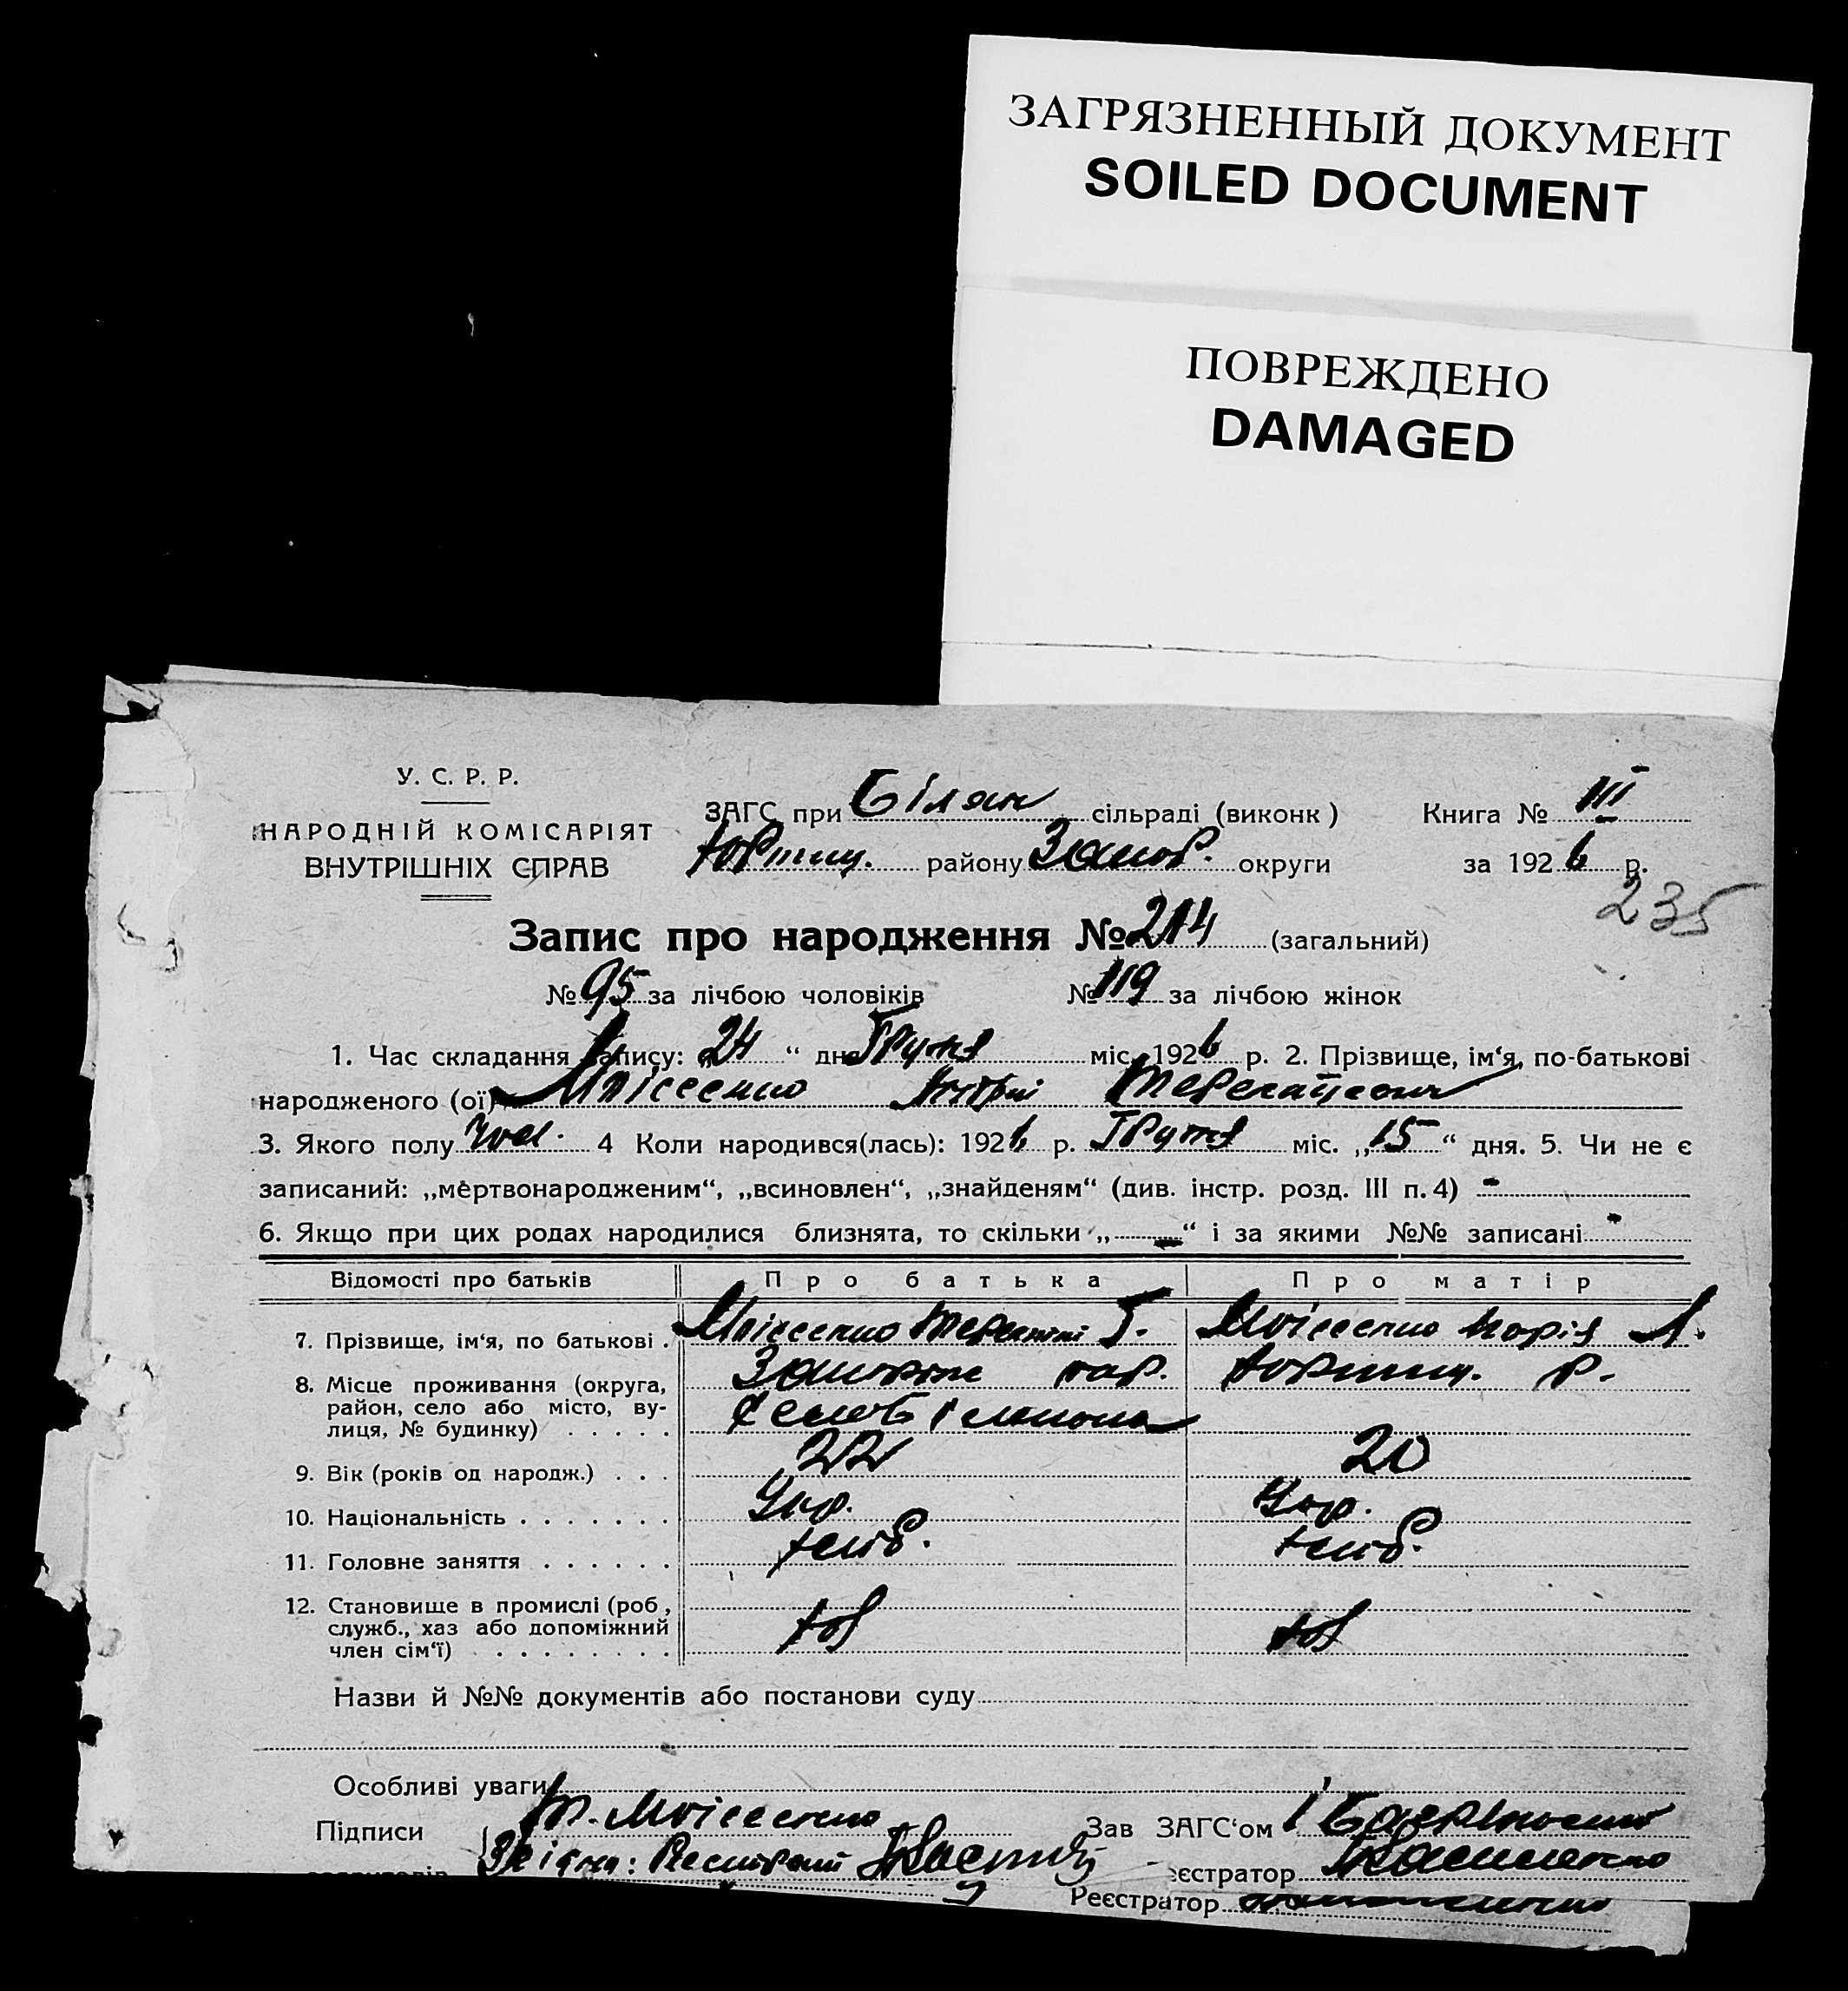 ЗАГРЯЗНЕННЫЙ ДОКУМЕНТ
SOILED DOCUMENT
ПОВРЕЖДЕНО
DAMAGED
У. С. Р. Р.
НАРОДНІЙ КОМІСАРІЯТ
ВНУТРІШНІХ СПРАВ
ЗАГС при Білян сільраді (виконк) Книга № III
Хортиц. району Запор. округи за 1926 р.
235
Запис про народження № 214 (загальний)
№ 95 за лічбою чоловіків № 119 за лічбою жінок
1. Час складання запису: „24“ дня Грудня міс. 1926 р. 2. Прізвище, ім‘я, по-батькові
народженого (ої) Моісеєнко Андрій
3. Якого полу чол. 4 Коли народився(лась): 1926 р. Грудня міс. „15“ дня. 5. Чи не є
записаний: „мертвонародженим“, „всиновлен“, „знайденям“ (див. інстр. розд. III п. 4) -
6. Якщо при цих родах народилися близнята, то скільки „—“ і за якими №№ записані -
Відомості про батьків Про батька Про матір
7. Прізвище, ім‘я, по батькові . Моісеєнко Г. Моісеєнко Марія Л.
8. Місце проживання (округа, Запоріж Хортиц. р.
район, село або місто, ву-
лиця, № будинку) . . . . .
9. Вік (років од народж.) . . . 22 20
10. Національність . . . . . . . Укр. Укр.
11. Головне заняття . . . . . . хліб. хліб.
12. Становище в промислі (роб,
служб., хаз або допоміжний
член сім‘ї) . . . . . . . .
Назви й №№ документів або постанови суду
Особливі уваги
Підписи Т. Моісеєнко Зав ЗАГС‘ом
Реєстратор